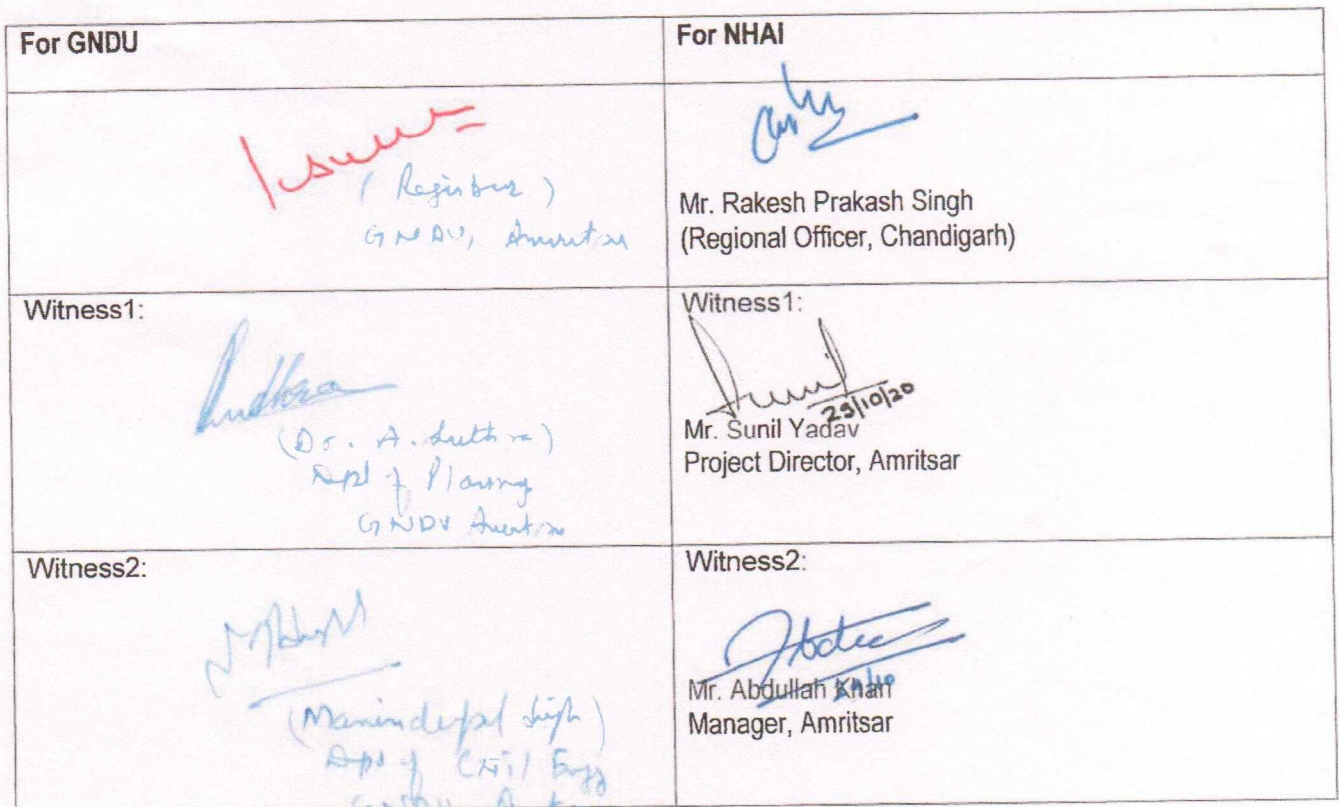 For GNDU
For NHAI
(Registrar)
GNDU, Amritsar
Mr. Rakesh Prakash Singh
(Regional Officer, Chandigarh)
Witness1:
(Dr. A. Luthra)
Dept of Planning
GNDU Amritsar
Witness1:
29/10/20
Mr. Sunil Yadav
Project Director, Amritsar
Witness2:
(Maninderpal Singh)
Dept of Civil Engg
GNDU
Witness2:
Mr. Abdullah Khan
Manager, Amritsar